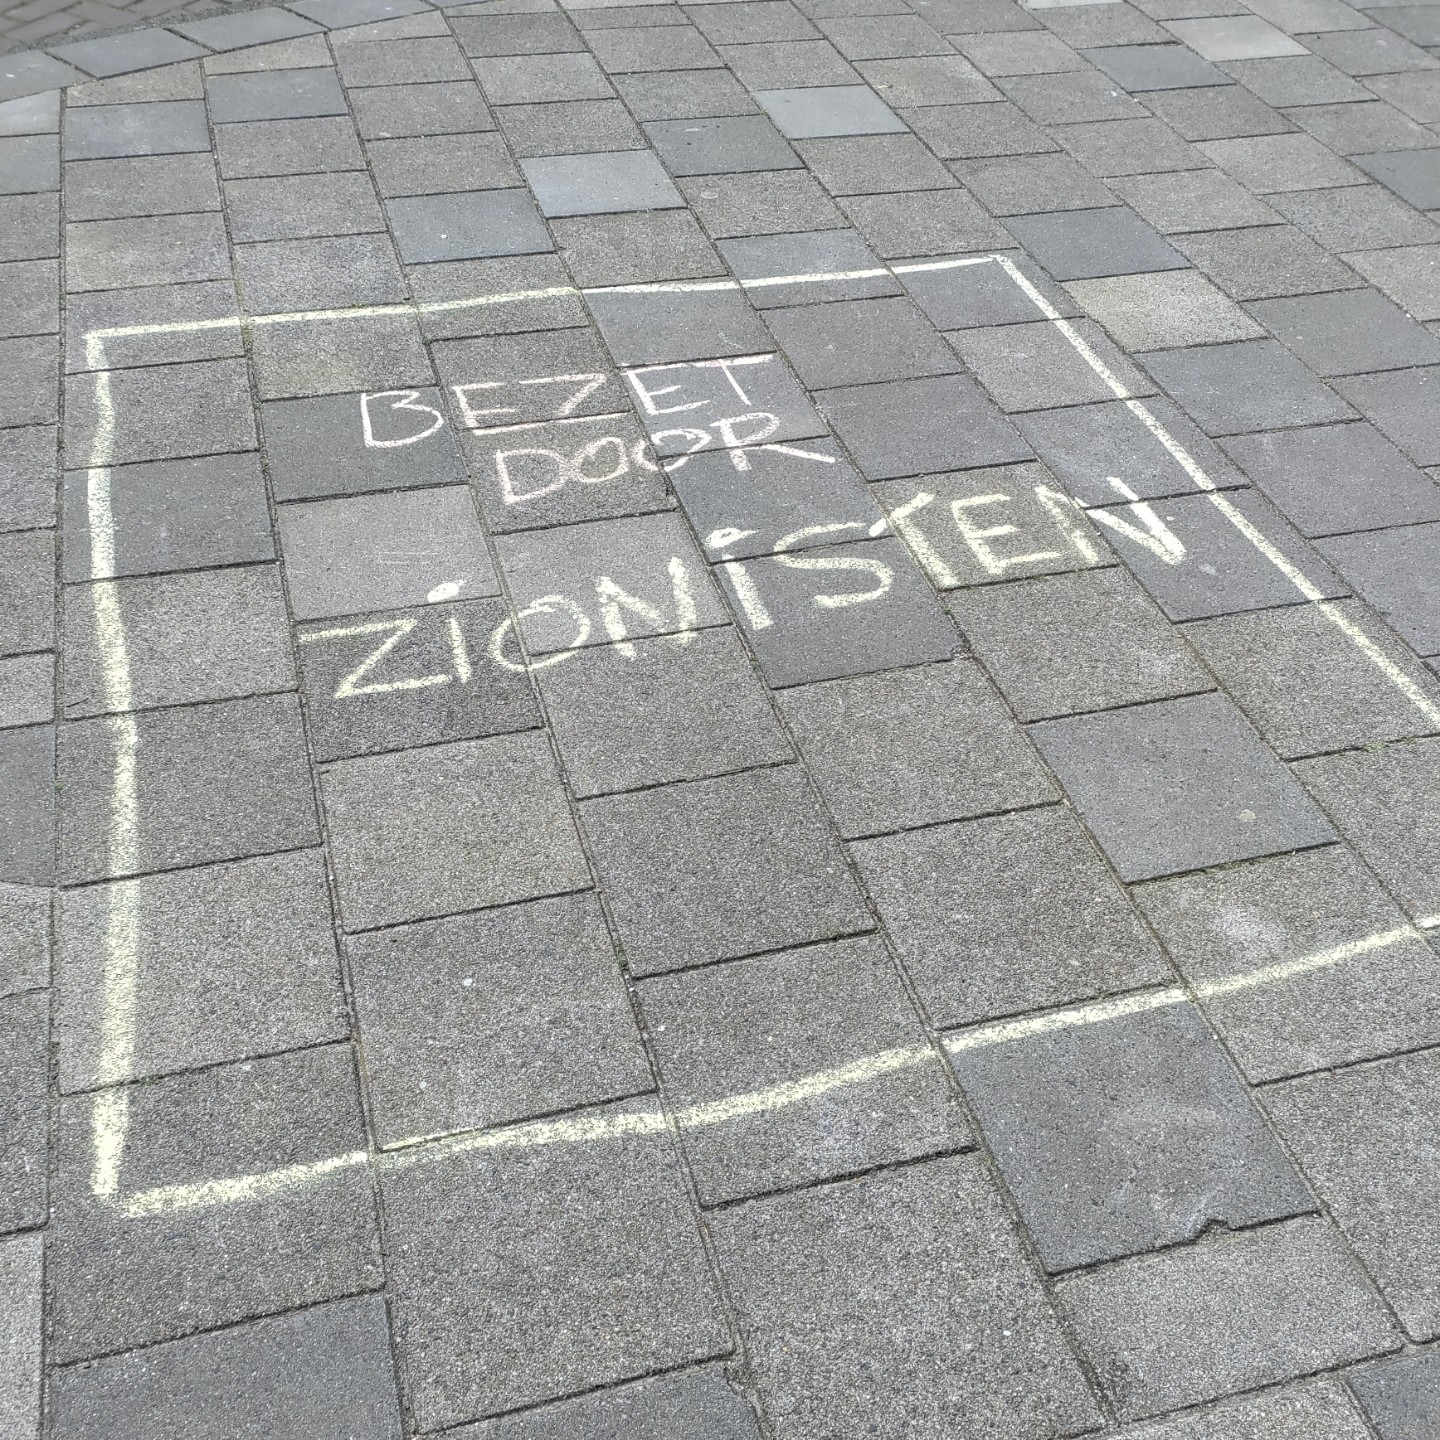 BEZET
DOOR
ZiONiSTEN